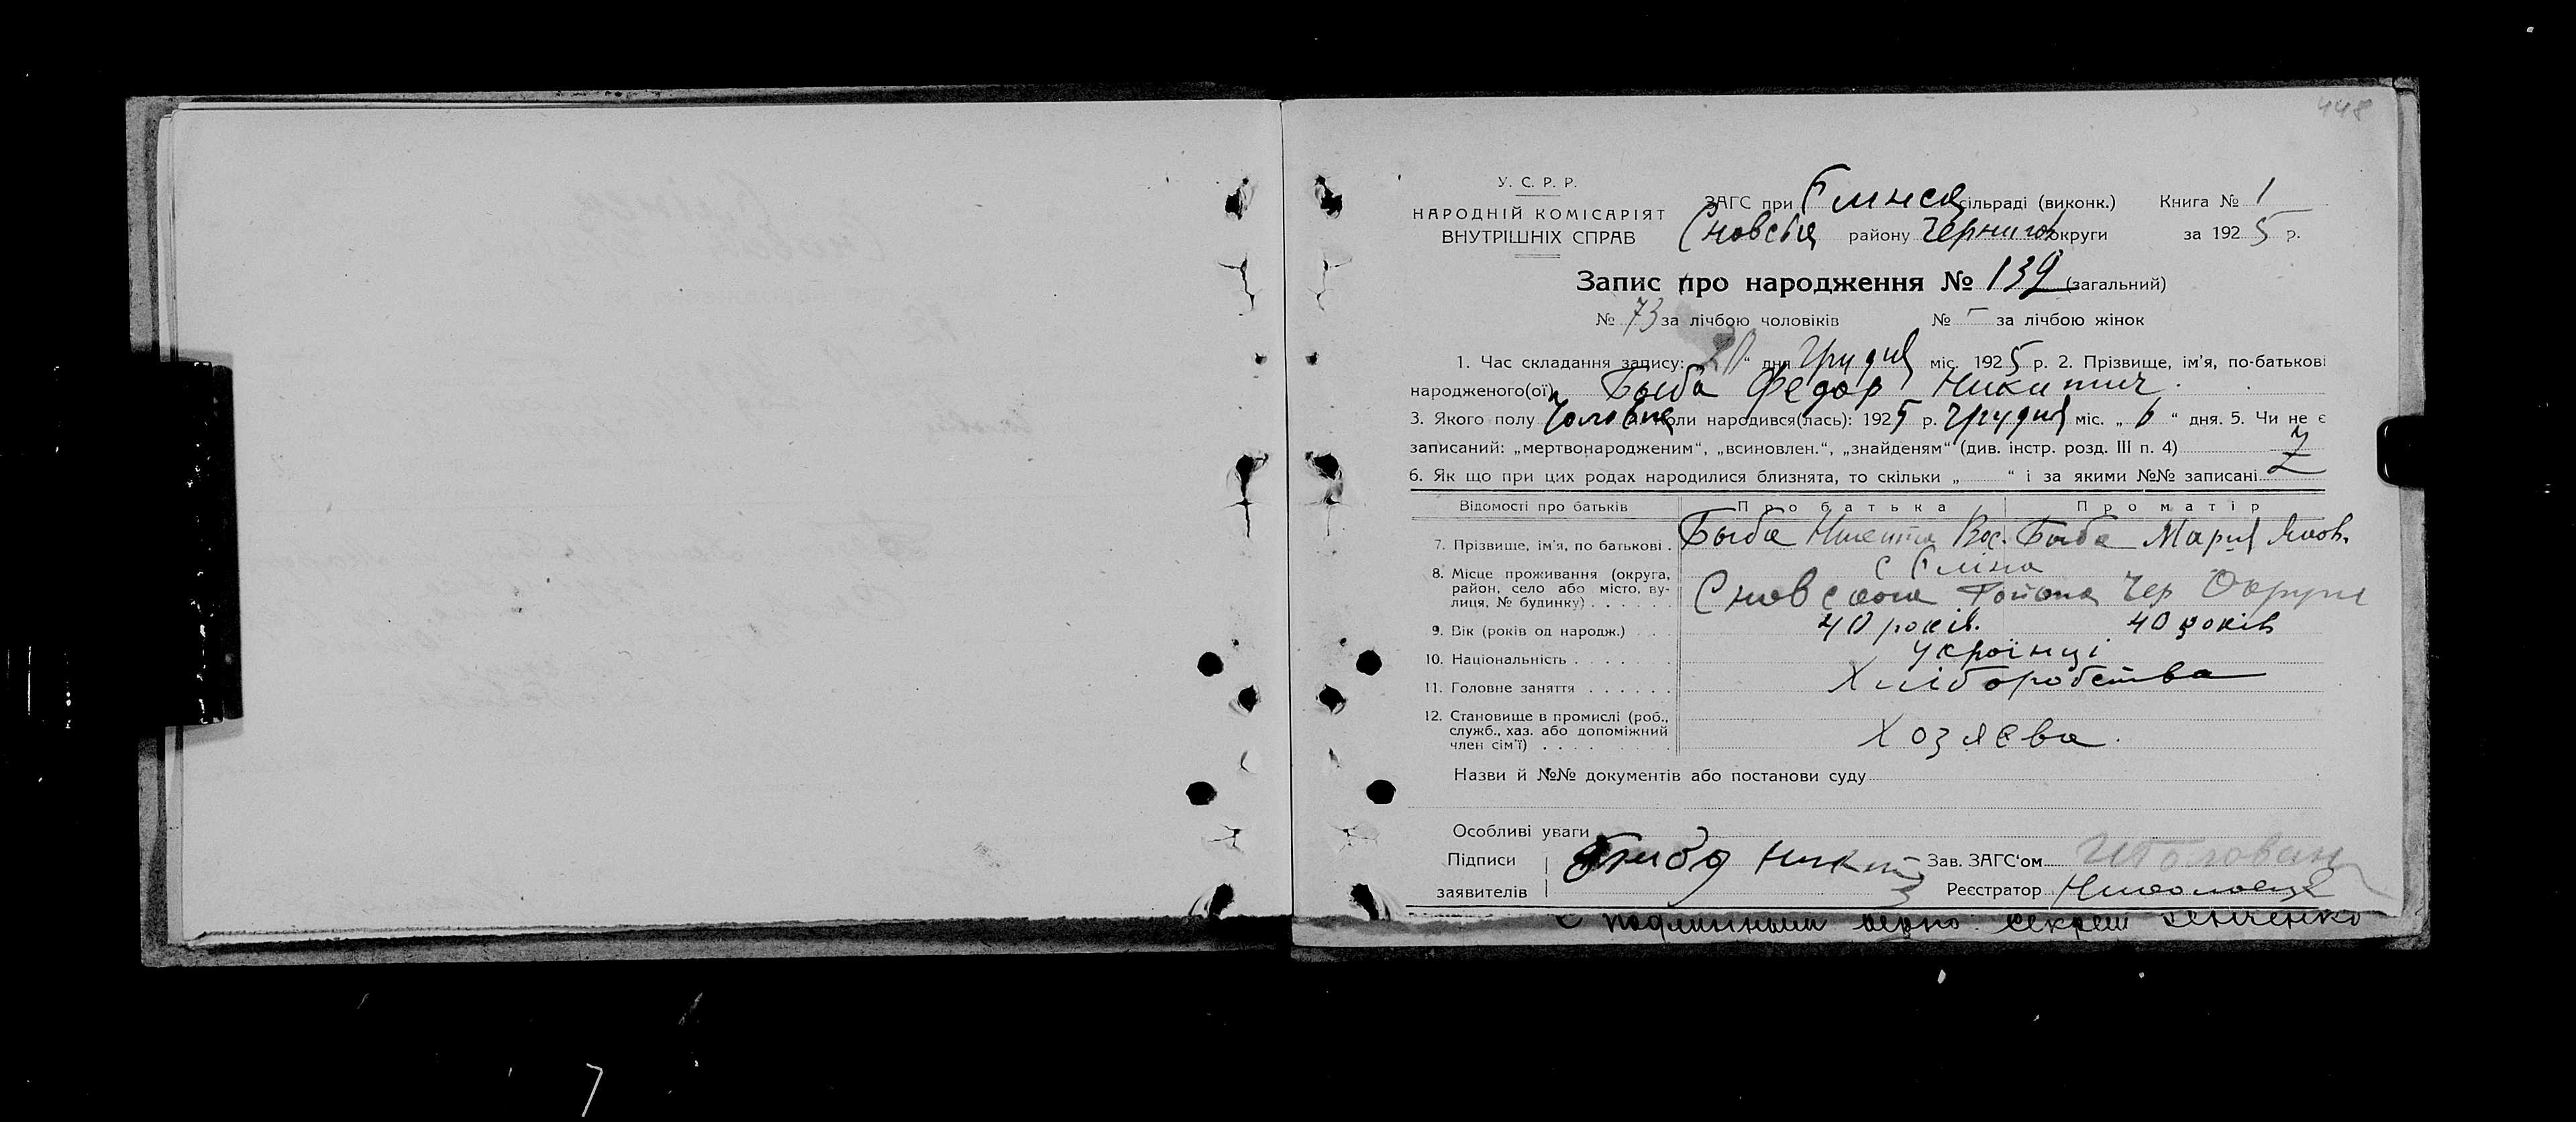 448
У. С. Р. Р.
НАРОДНІЙ КОМІСАРІЯТ
ВНУТРІШНІХ СПРАВ
ЗАГС при Єлінск сільраді (виконк.) Книга № 1
Сновськ району Чернигов округи за 1925 р.
Запис про народження № 139 (загальний)
№ 73 за лічбою чоловіків № - за лічбою жінок
1. Час складання запису: 20 “ дня Грудня міс. 1925 р. 2. Прізвище, ім'я, по-батькові
народженого(ої) Быба Федор Никитич.
3. Якого полу Чоловіче коли народився(лась): 1925 р. Грудня міс. „ 6 “ дня. 5. Чи не є
записаний: „мертвонародженим“, „всиновлен.“, „знайденям“ (див. інстр. розд. III п. 4)
6. Як що при цих родах народилися близнята, то скільки „ “ і за якими №№ записані
Відомості про батьків Про батька Про матір
7. Прізвище, ім'я, по батькові . Быба Никита Вас. Быба Мария Яков.
8. Місце проживання (округа, район, село або місто, вулиця, № будинку) . . . . . . с Єліна
Сновского Района Чер Округи
9. Вік (років од народж.) . . . 40 років. 40 років
10. Національність . . . . . . українці
11. Головне заняття . . . . . . Хліборобства
12. Становище в промислі (роб., служб., хаз. або допоміжний член сім'ї) . . . . . . Хозяєва.
Назви й №№ документів або постанови суду
Особливі уваги
Підписи заявителів Быба Никит
Зав. ЗАГС'ом
Реєстратор
С подлинным верно: секрет
7